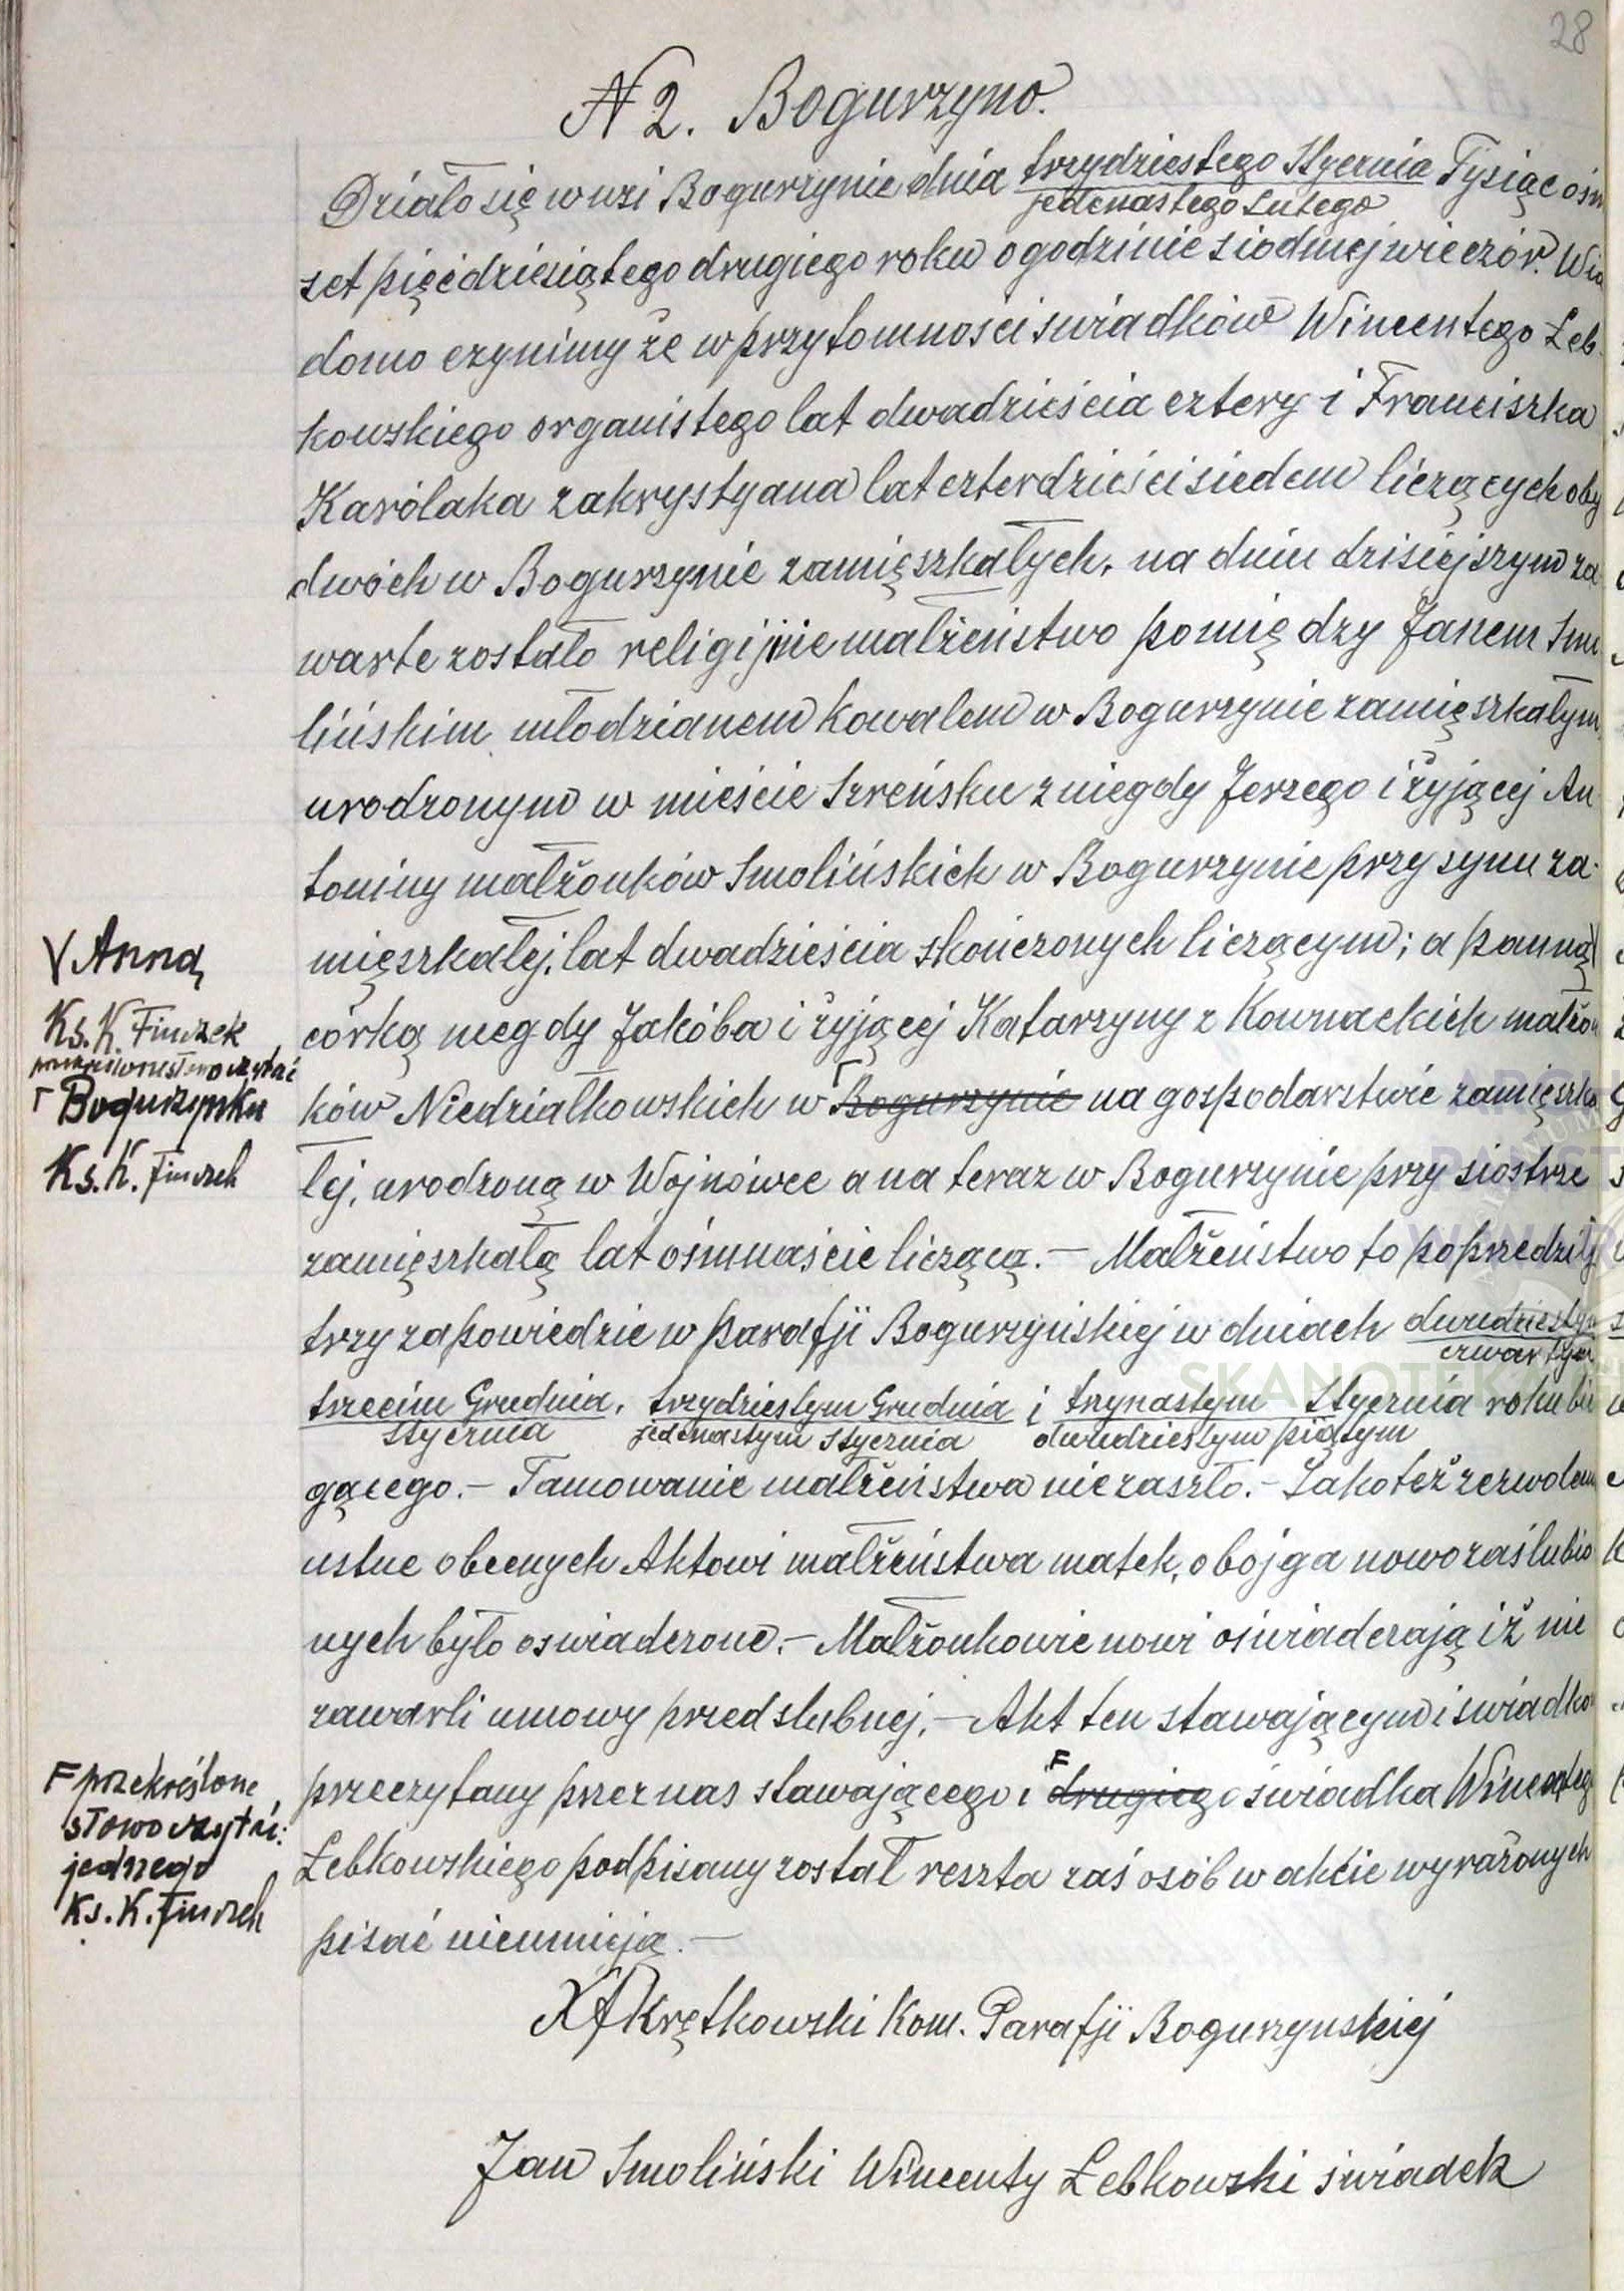 28
N 2. Bogurzyno.
Działo się w wsi Bogurzynie dnia trzydziestego Stycznia Tysiąc ośm
jedenastego Lutego
set pięćdziesiątego drugiego roku o godzinie siódmej wieczór. Wia
domo czynimy że w przytomności swiadków Wincentego Łeb-
kowskiego organistego lat dwadzieścia cztery i Franciszka
Karólaka zakrystyana lat czterdzieści siedem liczących oby
dwóch w Bogurzynie zamięszkałych, na dniu dzisiejszym za
warte zostało religijnie małżeństwo pomiędzy Janem Smo
lińskim młodzianem kowalem w Bogurzynie zamięszkałym,
urodzonym w mieście Szreńsku z niegdy Jerzego i żyjącej An
toniny małżonków Smolińskich w Bogurzynie przy synu za-
mięszkałej, lat dwadzieścia skończonych liczącym; a panną V
V Anną
córką niegdy Jakóba i żyjącej Katarzyny z Kownackich małżon
Ks. K. Finczek
ków Niedziałkowskich w Bogurzynie na gospodarstwie zamięszka
Γ Bogurzynku
łej, urodzoną w Wójnówce a na teraz w Bogurzynie przy siostrze
Ks. K. Finczek
zamięszkałą lat ośmnaście liczącą. – Małżeństwo to poprzedziły
trzy zapowiedzie w parafji Bogurzyńskiej w dniach dwudziestym
czwartym
trzecim Grudnia, trzydziestym Grudnia i trzynastym Stycznia roku bie
stycznia jedenastym stycznia dwudziestym piątym
gącego. – Tamowanie małżeństwa nie zaszło. – Jako też zezwolenie
ustne obecnych Aktowi małżeństwa matek, obojga nowozaślubio
nych było oswiadczone. – Małżonkowie nowi oświadczają iż nie
zawarli umowy przedslubnej. – Akt ten stawającym i swiadkom
przeczytany przez nas stawającego i drugiego świadka Wincentego
F przekreślone
słowo czytać:
jednego
Ks. K. Finczek
Łebkowskiego podpisany został reszta zaś osób w akcie wyrażonych
pisać nieumieją. –
X A Krętkowski Kom. Parafji Bogurzynskiej
Jan Smoliński Wincenty Łebkowski świadek